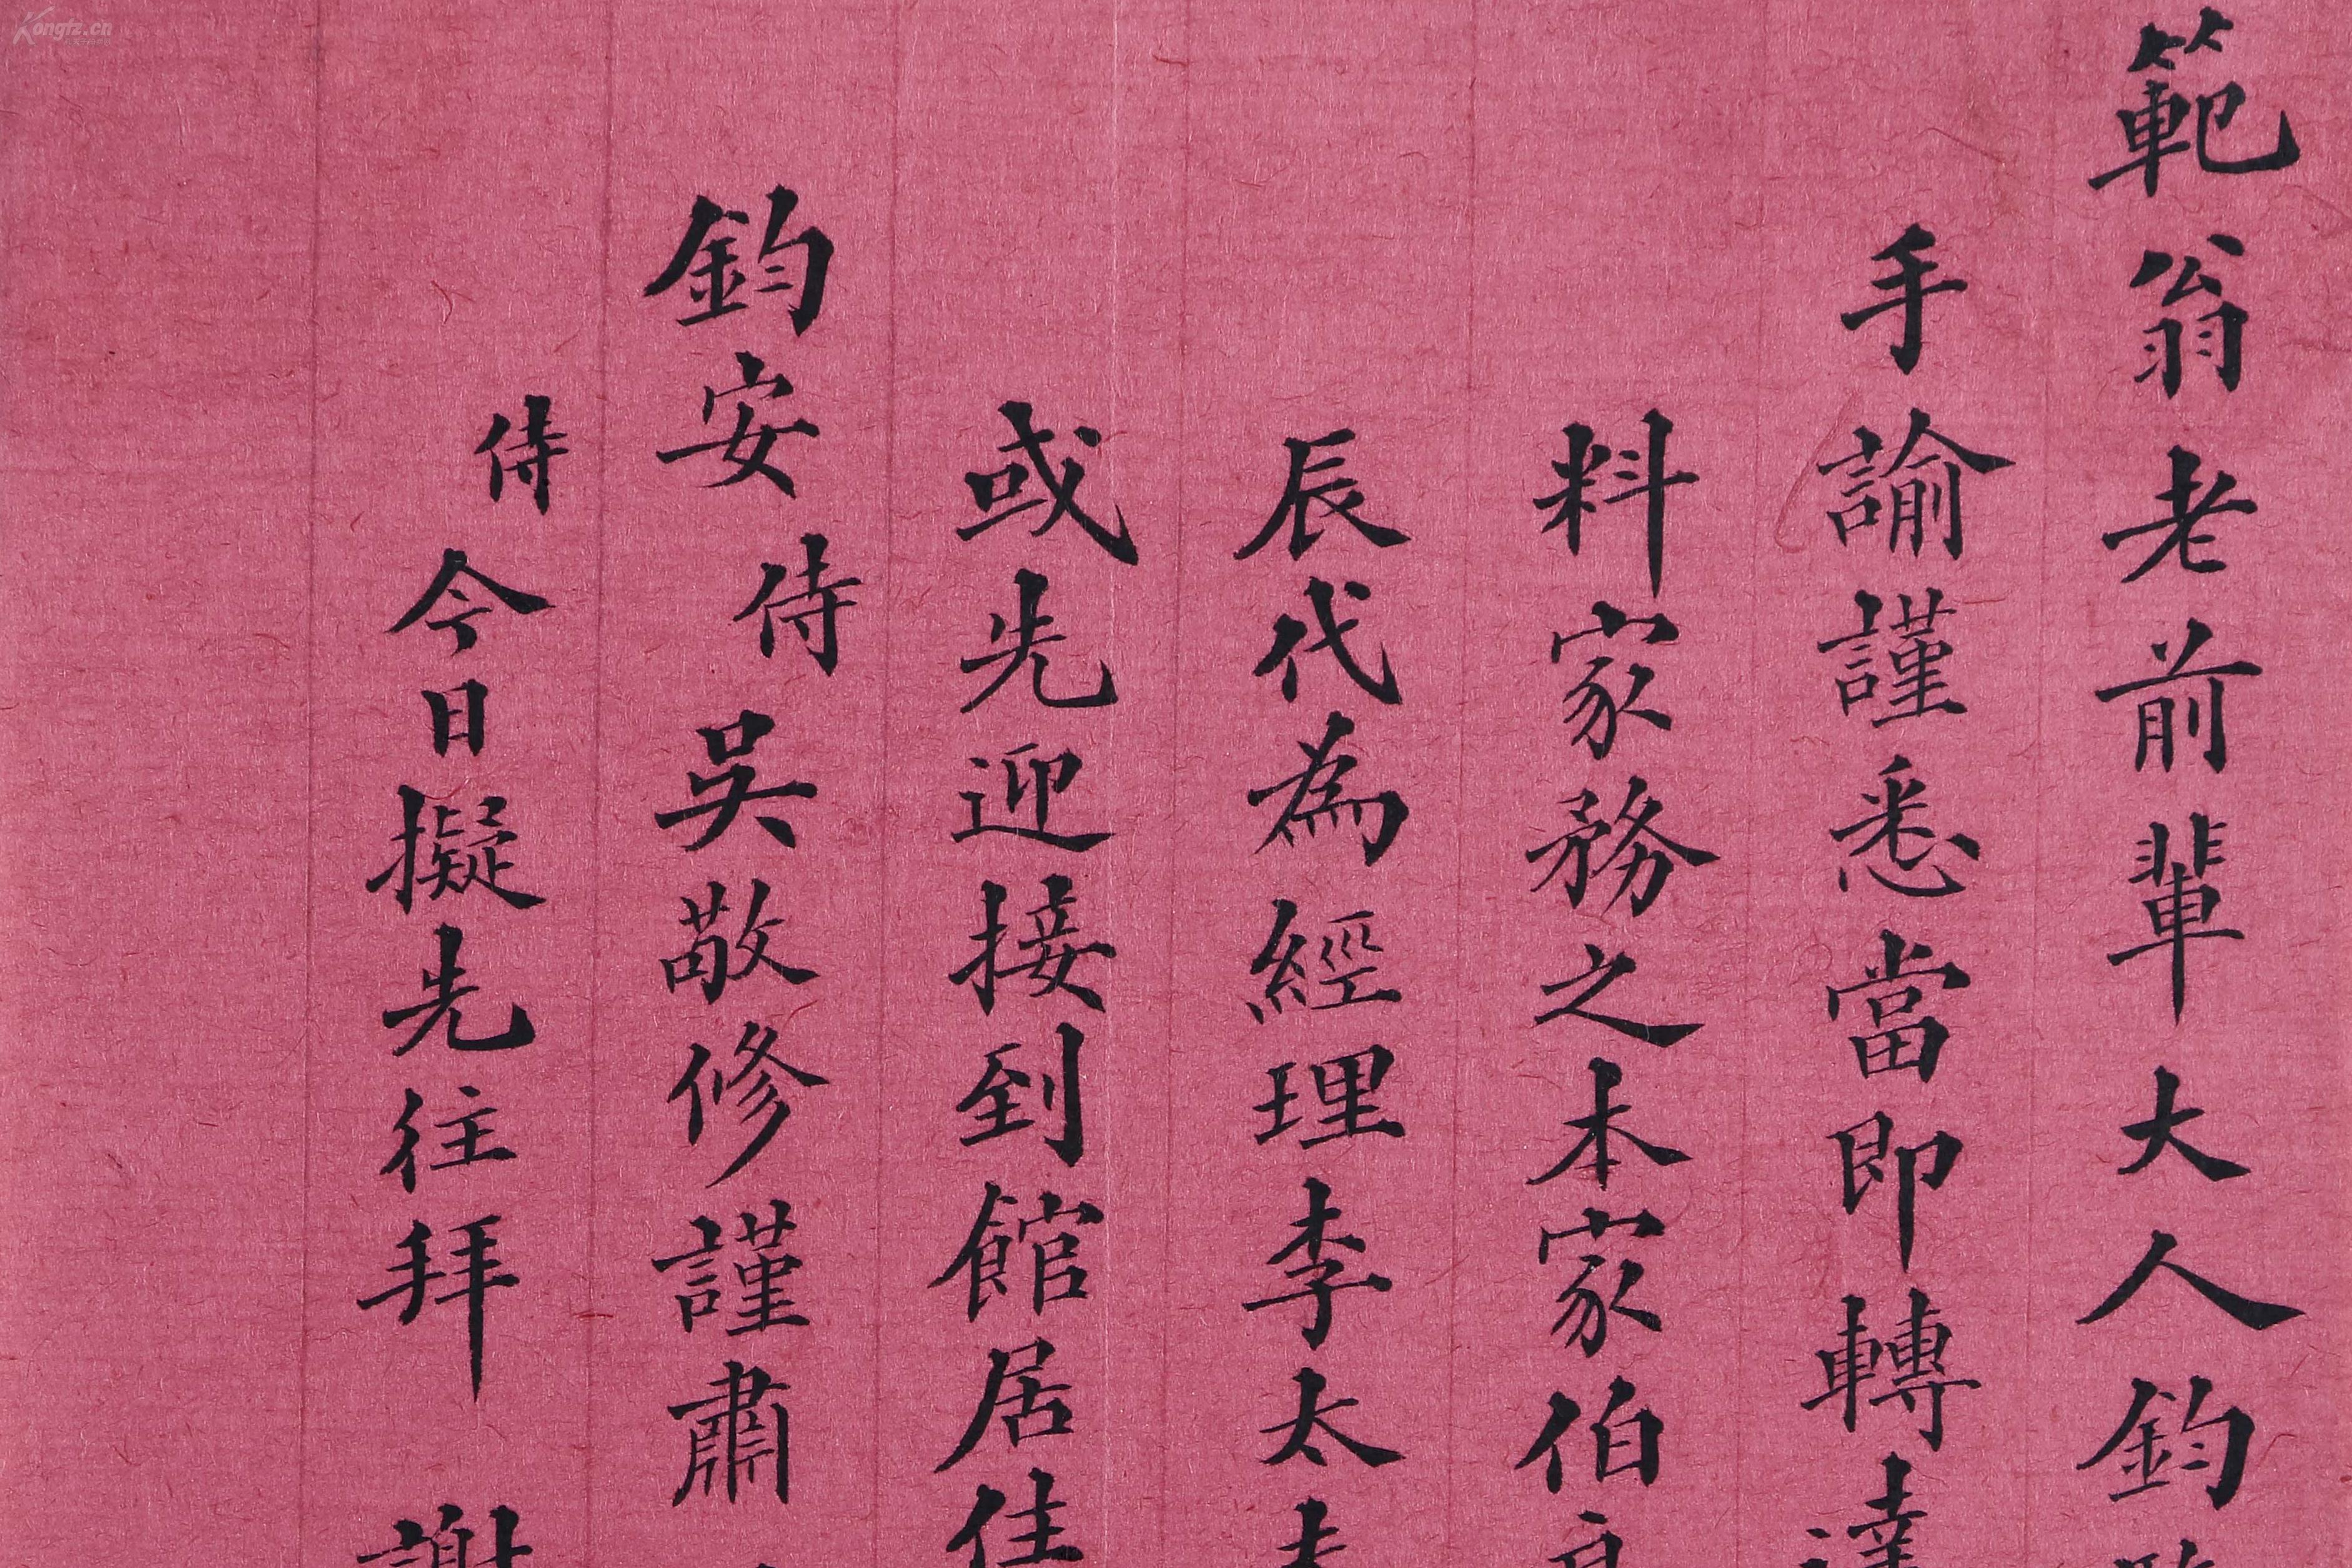 範翁老前輩大人鈞
手諭謹悉當即轉達
料家務之本家伯
辰代為經理李太
或先迎接到館居住
鈞安侍吳敬修謹肅
侍今日擬先往拜 謝
Kongfz.cn